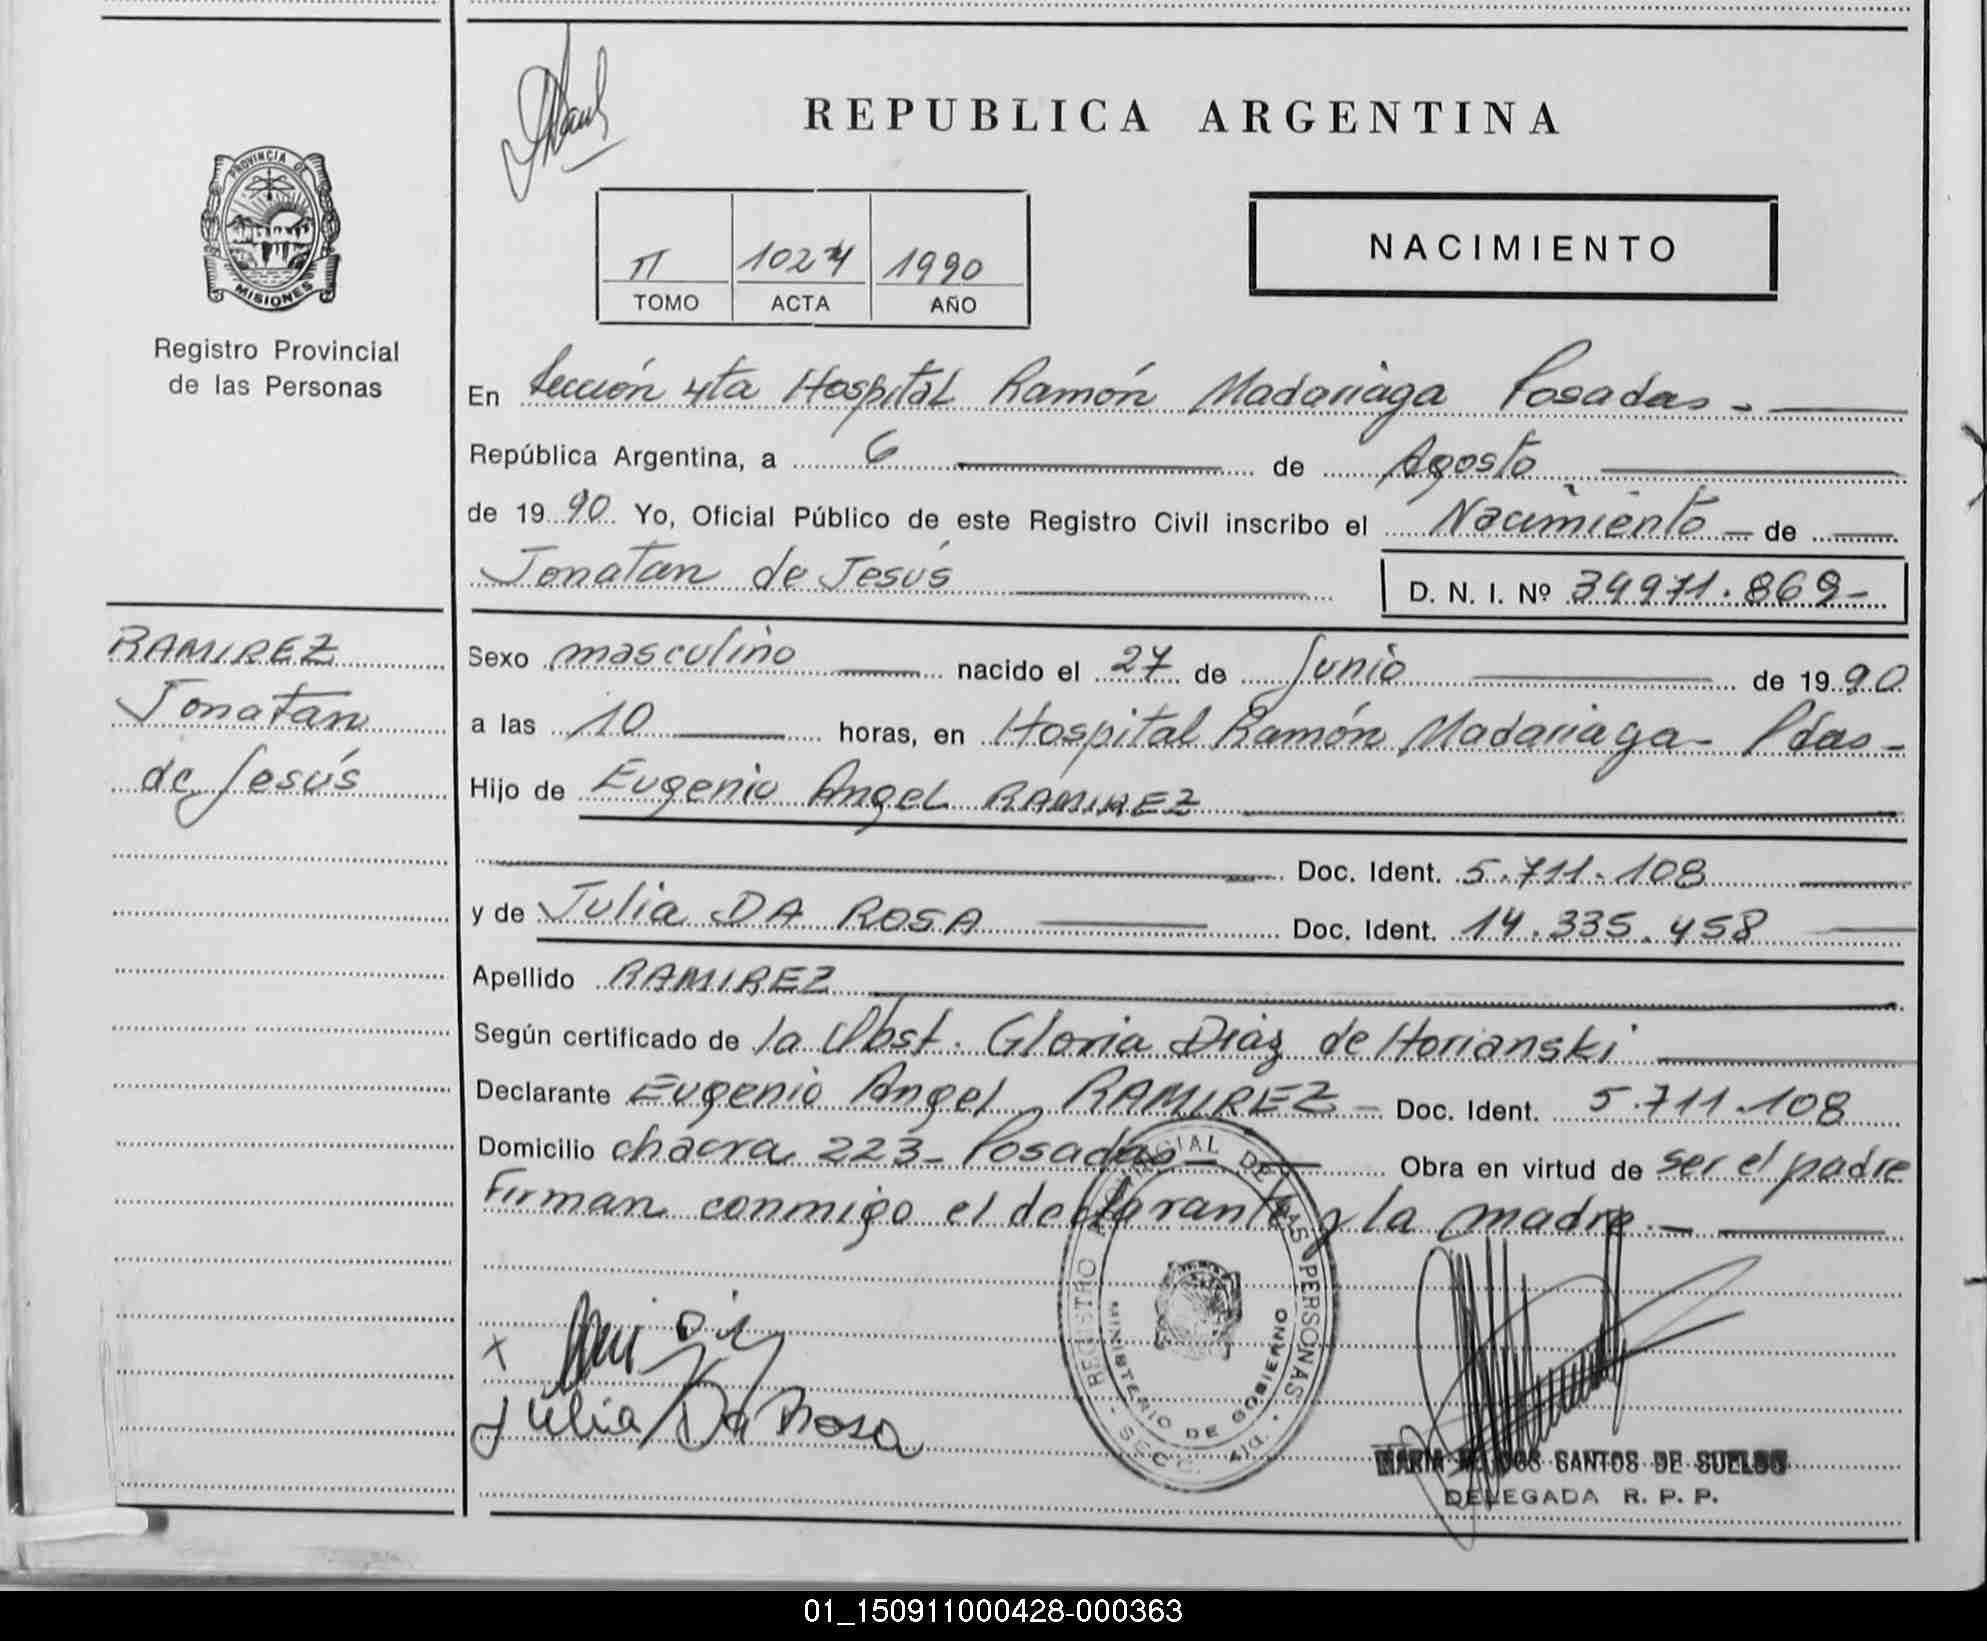 REPUBLICA ARGENTINA
PROVINCIA DE
MISIONES
Registro Provincial
de las Personas
II 1024 1990
TOMO ACTA AÑO
NACIMIENTO
En Sección 4ta Hospital Ramón Madariaga Posadas.-
República Argentina, a 6 de Agosto
de 1990 Yo, Oficial Público de este Registro Civil inscribo el Nacimiento de
Jonatan de Jesús
D. N. I. Nº 34971.869-
RAMIREZ
Jonatan
de Jesús
Sexo masculino nacido el 27 de Junio de 1990
a las 10 horas, en Hospital Ramón Madariaga - Pdas-
Hijo de Eugenio Angel RAMIREZ
Doc. Ident. 5.711.108
y de Julia DA ROSA Doc. Ident. 14.335.458
Apellido RAMIREZ
Según certificado de la Obst. Gloria Diáz de Horianski
Declarante Eugenio Angel RAMIREZ - Doc. Ident. 5.711.108
Domicilio chacra 223- Posadas- Obra en virtud de ser el padre
Firman conmigo el declarante y la madre.-
REGISTRO PROVINCIAL DE LAS PERSONAS
MINISTERIO DE GOBIERNO
SECC. 4ta.
x
Julia Da Rosa
MARIA DOS SANTOS DE SUELDO
DELEGADA R. P. P.
01_150911000428-000363